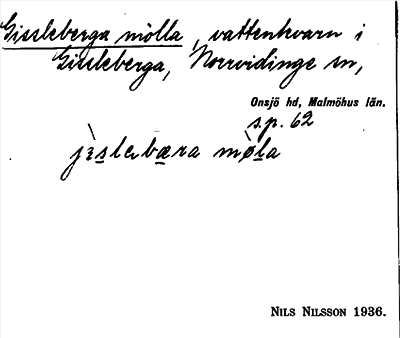 Gissleberga mölla, vattenkvarn i
Gissleberga, Norrvidinge sn,
Onsjö hd, Malmöhus län.
s.p. 62
jɜ̀slebæra mø̀la
NILS NILSSON 1936.